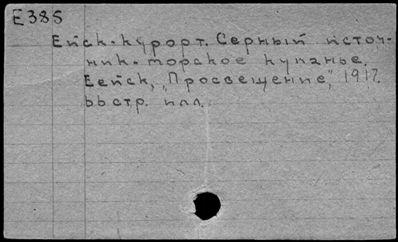 Е385
Ейск-курорт. Серный источ-
ник-морское купанье.
Еейск, „Просвещение", 1912.
ььстр. илл.